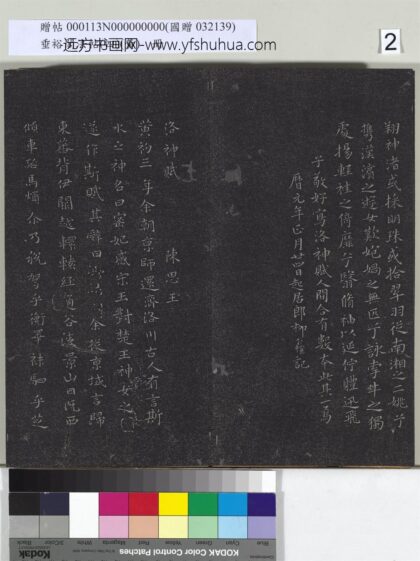 贈帖 000113N000000000(國贈 032139)
远方书画网-www.yfshuhua.com
2
翔神渚或採明珠或拾翠羽從南湘之二姚兮
攜漢濱之游女歎匏媧之無匹兮詠牽牛之獨
處揚輕袿之倚靡兮翳脩袖以延佇體迅飛
子敬好寫洛神賦人間合有數本此其一焉
曆元年正月廿四日起居郎柳
記
洛神賦 陳思王
黃初三年余朝京師還濟洛川古人有言斯
水之神名曰宓妃感宋玉對楚王神女之
遂作斯賦其辭曰 余從京域言歸
東藩背伊闕越轘轅經通谷陵景山日既西
傾車殆馬煩爾乃稅駕乎蘅皋秣駟乎芝
KODAK Color Control Patches
Blue
Cyan
Green
Yellow
Red
Magenta
White
3/Color
Black